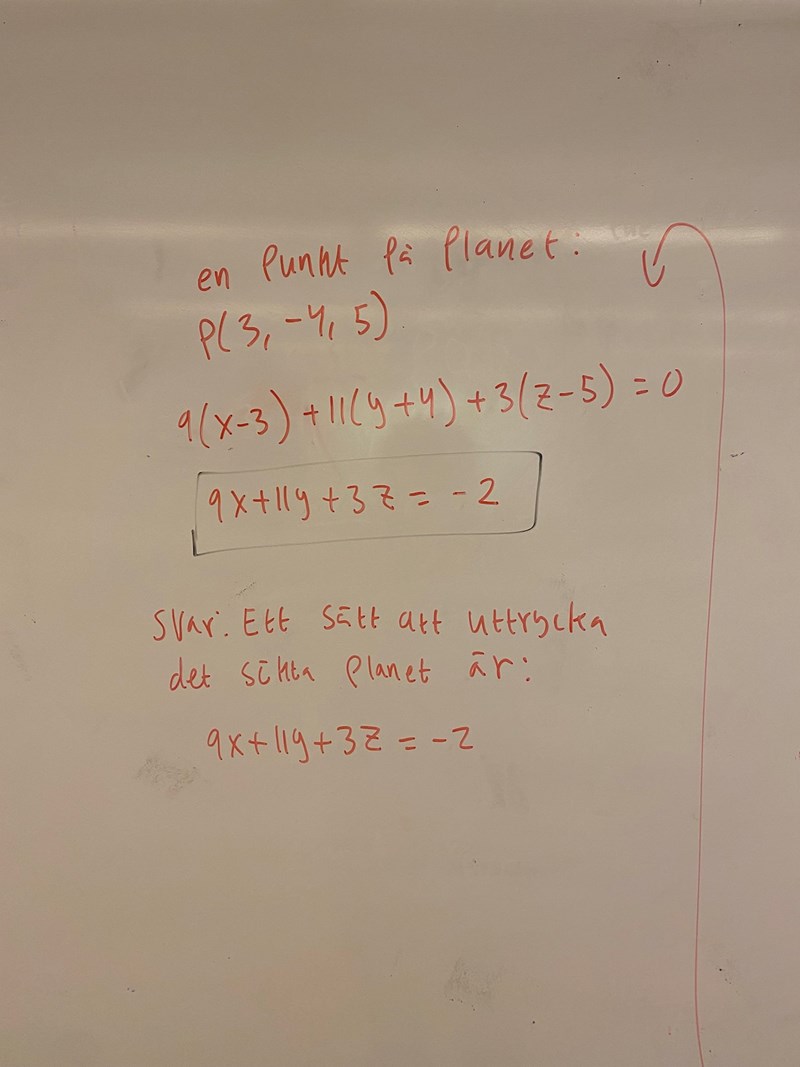 en Punkt på Planet:
P(3, -4, 5)
9(x-3) + 11(y+4) + 3(z-5) = 0
9x+11y+3z = -2
Svar: Ett sätt att uttrycka
det sökta Planet är:
9x+11y+3z = -2